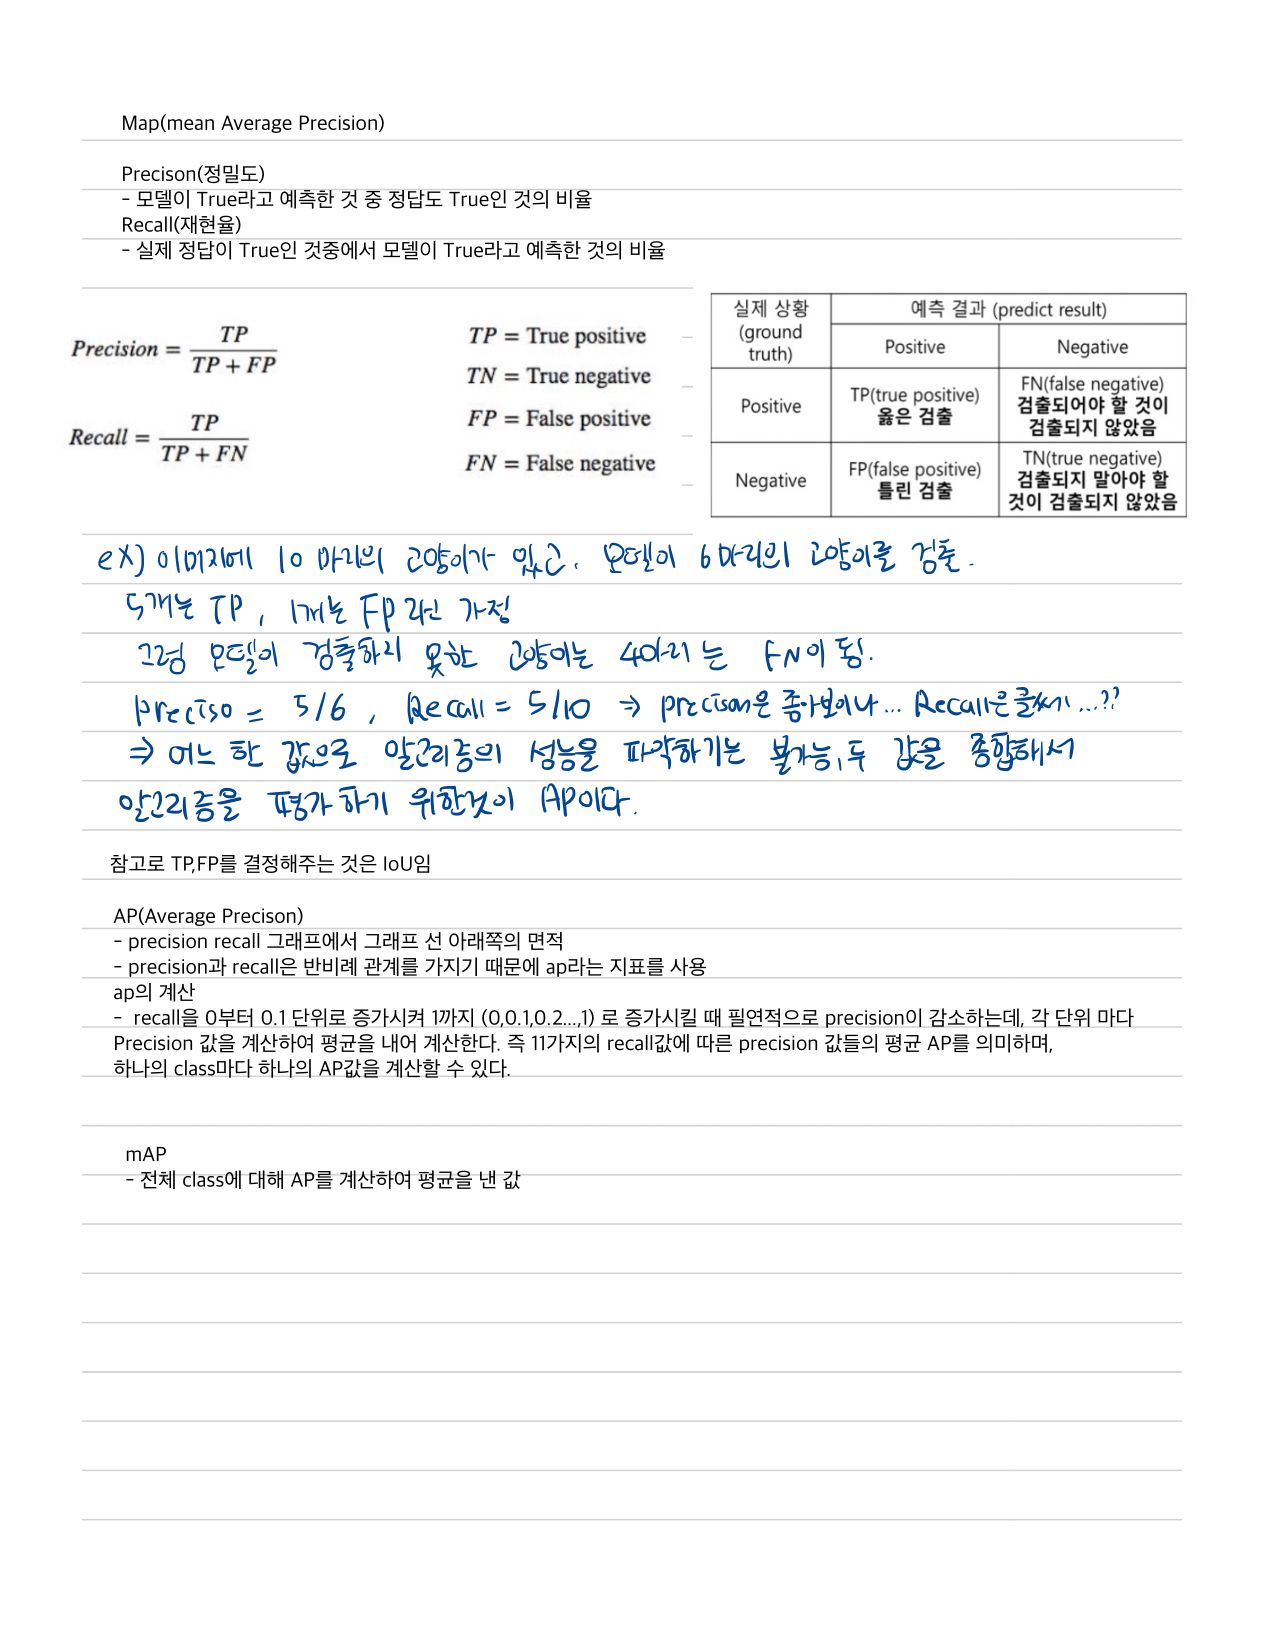 Map(mean Average Precision)
Precison(정밀도)
- 모델이 True라고 예측한 것 중 정답도 True인 것의 비율
Recall(재현율)
- 실제 정답이 True인 것중에서 모델이 True라고 예측한 것의 비율
Precision = TP / (TP + FP)
Recall = TP / (TP + FN)
TP = True positive
TN = True negative
FP = False positive
FN = False negative
실제 상황 (ground truth) 예측 결과 (predict result)
Positive Negative
Positive TP(true positive) 옳은 검출 FN(false negative) 검출되어야 할 것이 검출되지 않았음
Negative FP(false positive) 틀린 검출 TN(true negative) 검출되지 말아야 할 것이 검출되지 않았음
ex) 이미지에 10 마리의 고양이가 있고, 모델이 6마리의 고양이를 검출.
5개는 TP, 1개는 FP 라고 가정
그럼 모델이 검출하지 못한 고양이는 4마리는 FN이 됨.
preciso = 5/6, Recall = 5/10 ⇒ precison은 좋아보이나... Recall은 글쎄...??
⇒ 어느 한 값으로 알고리즘의 성능을 파악하기는 불가능, 두 값을 종합해서
알고리즘을 평가하기 위한것이 AP이다.
참고로 TP,FP를 결정해주는 것은 IoU임
AP(Average Precison)
- precision recall 그래프에서 그래프 선 아래쪽의 면적
- precision과 recall은 반비례 관계를 가지기 때문에 ap라는 지표를 사용
ap의 계산
- recall을 0부터 0.1 단위로 증가시켜 1까지 (0,0.1,0.2...,1) 로 증가시킬 때 필연적으로 precision이 감소하는데, 각 단위 마다
Precision 값을 계산하여 평균을 내어 계산한다. 즉 11가지의 recall값에 따른 precision 값들의 평균 AP를 의미하며,
하나의 class마다 하나의 AP값을 계산할 수 있다.
mAP
- 전체 class에 대해 AP를 계산하여 평균을 낸 값